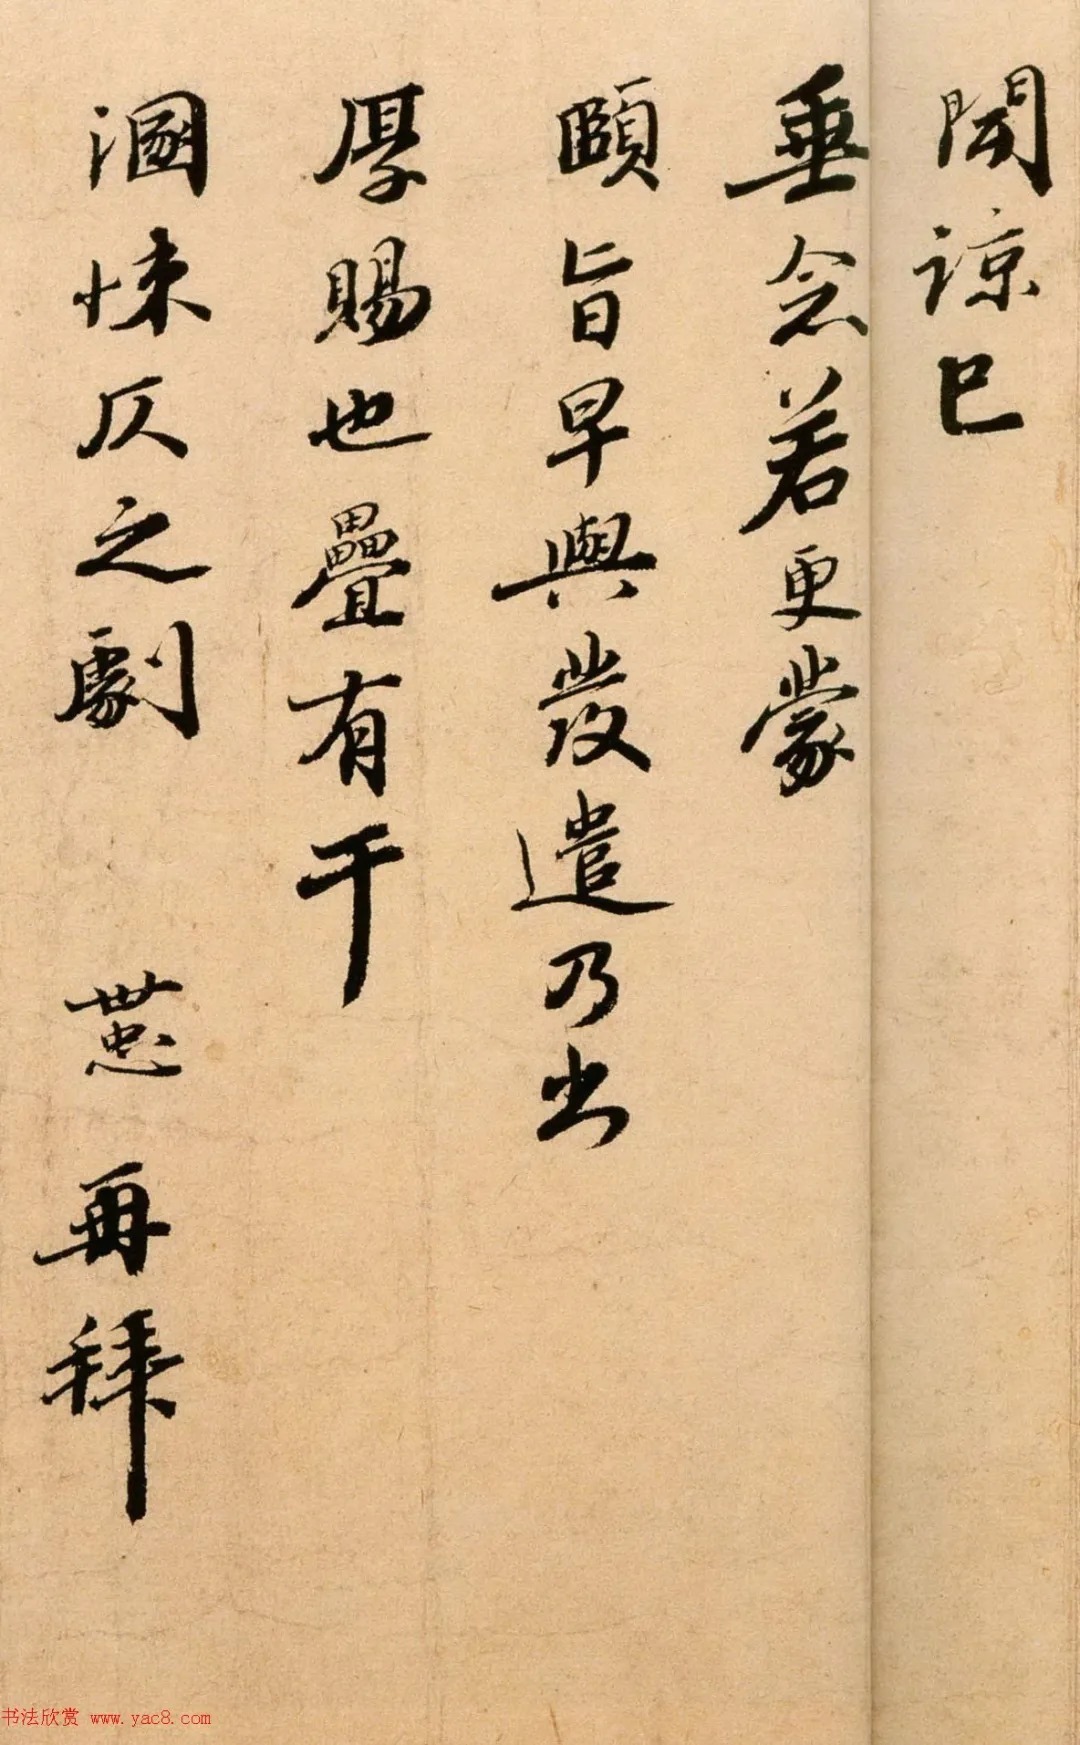 聞諒已
垂念若更蒙
頤旨早與發遣乃出
厚賜也疊有干
溷悚仄之劇 世忠 再拜
书法欣赏 www.yac8.com